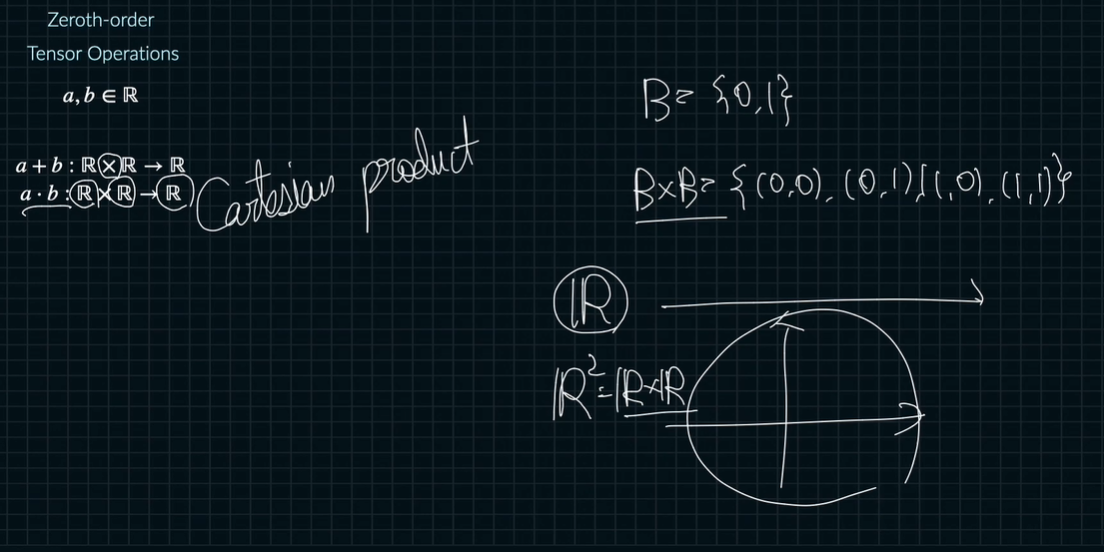 Zeroth-order
Tensor Operations
a, b ∈ ℝ
a + b : ℝ × ℝ → ℝ
a · b : ℝ × ℝ → ℝ
Cartesian product
B = {0,1}
B×B = {(0,0), (0,1), (1,0), (1,1)}
ℝ
ℝ² = ℝ×ℝ